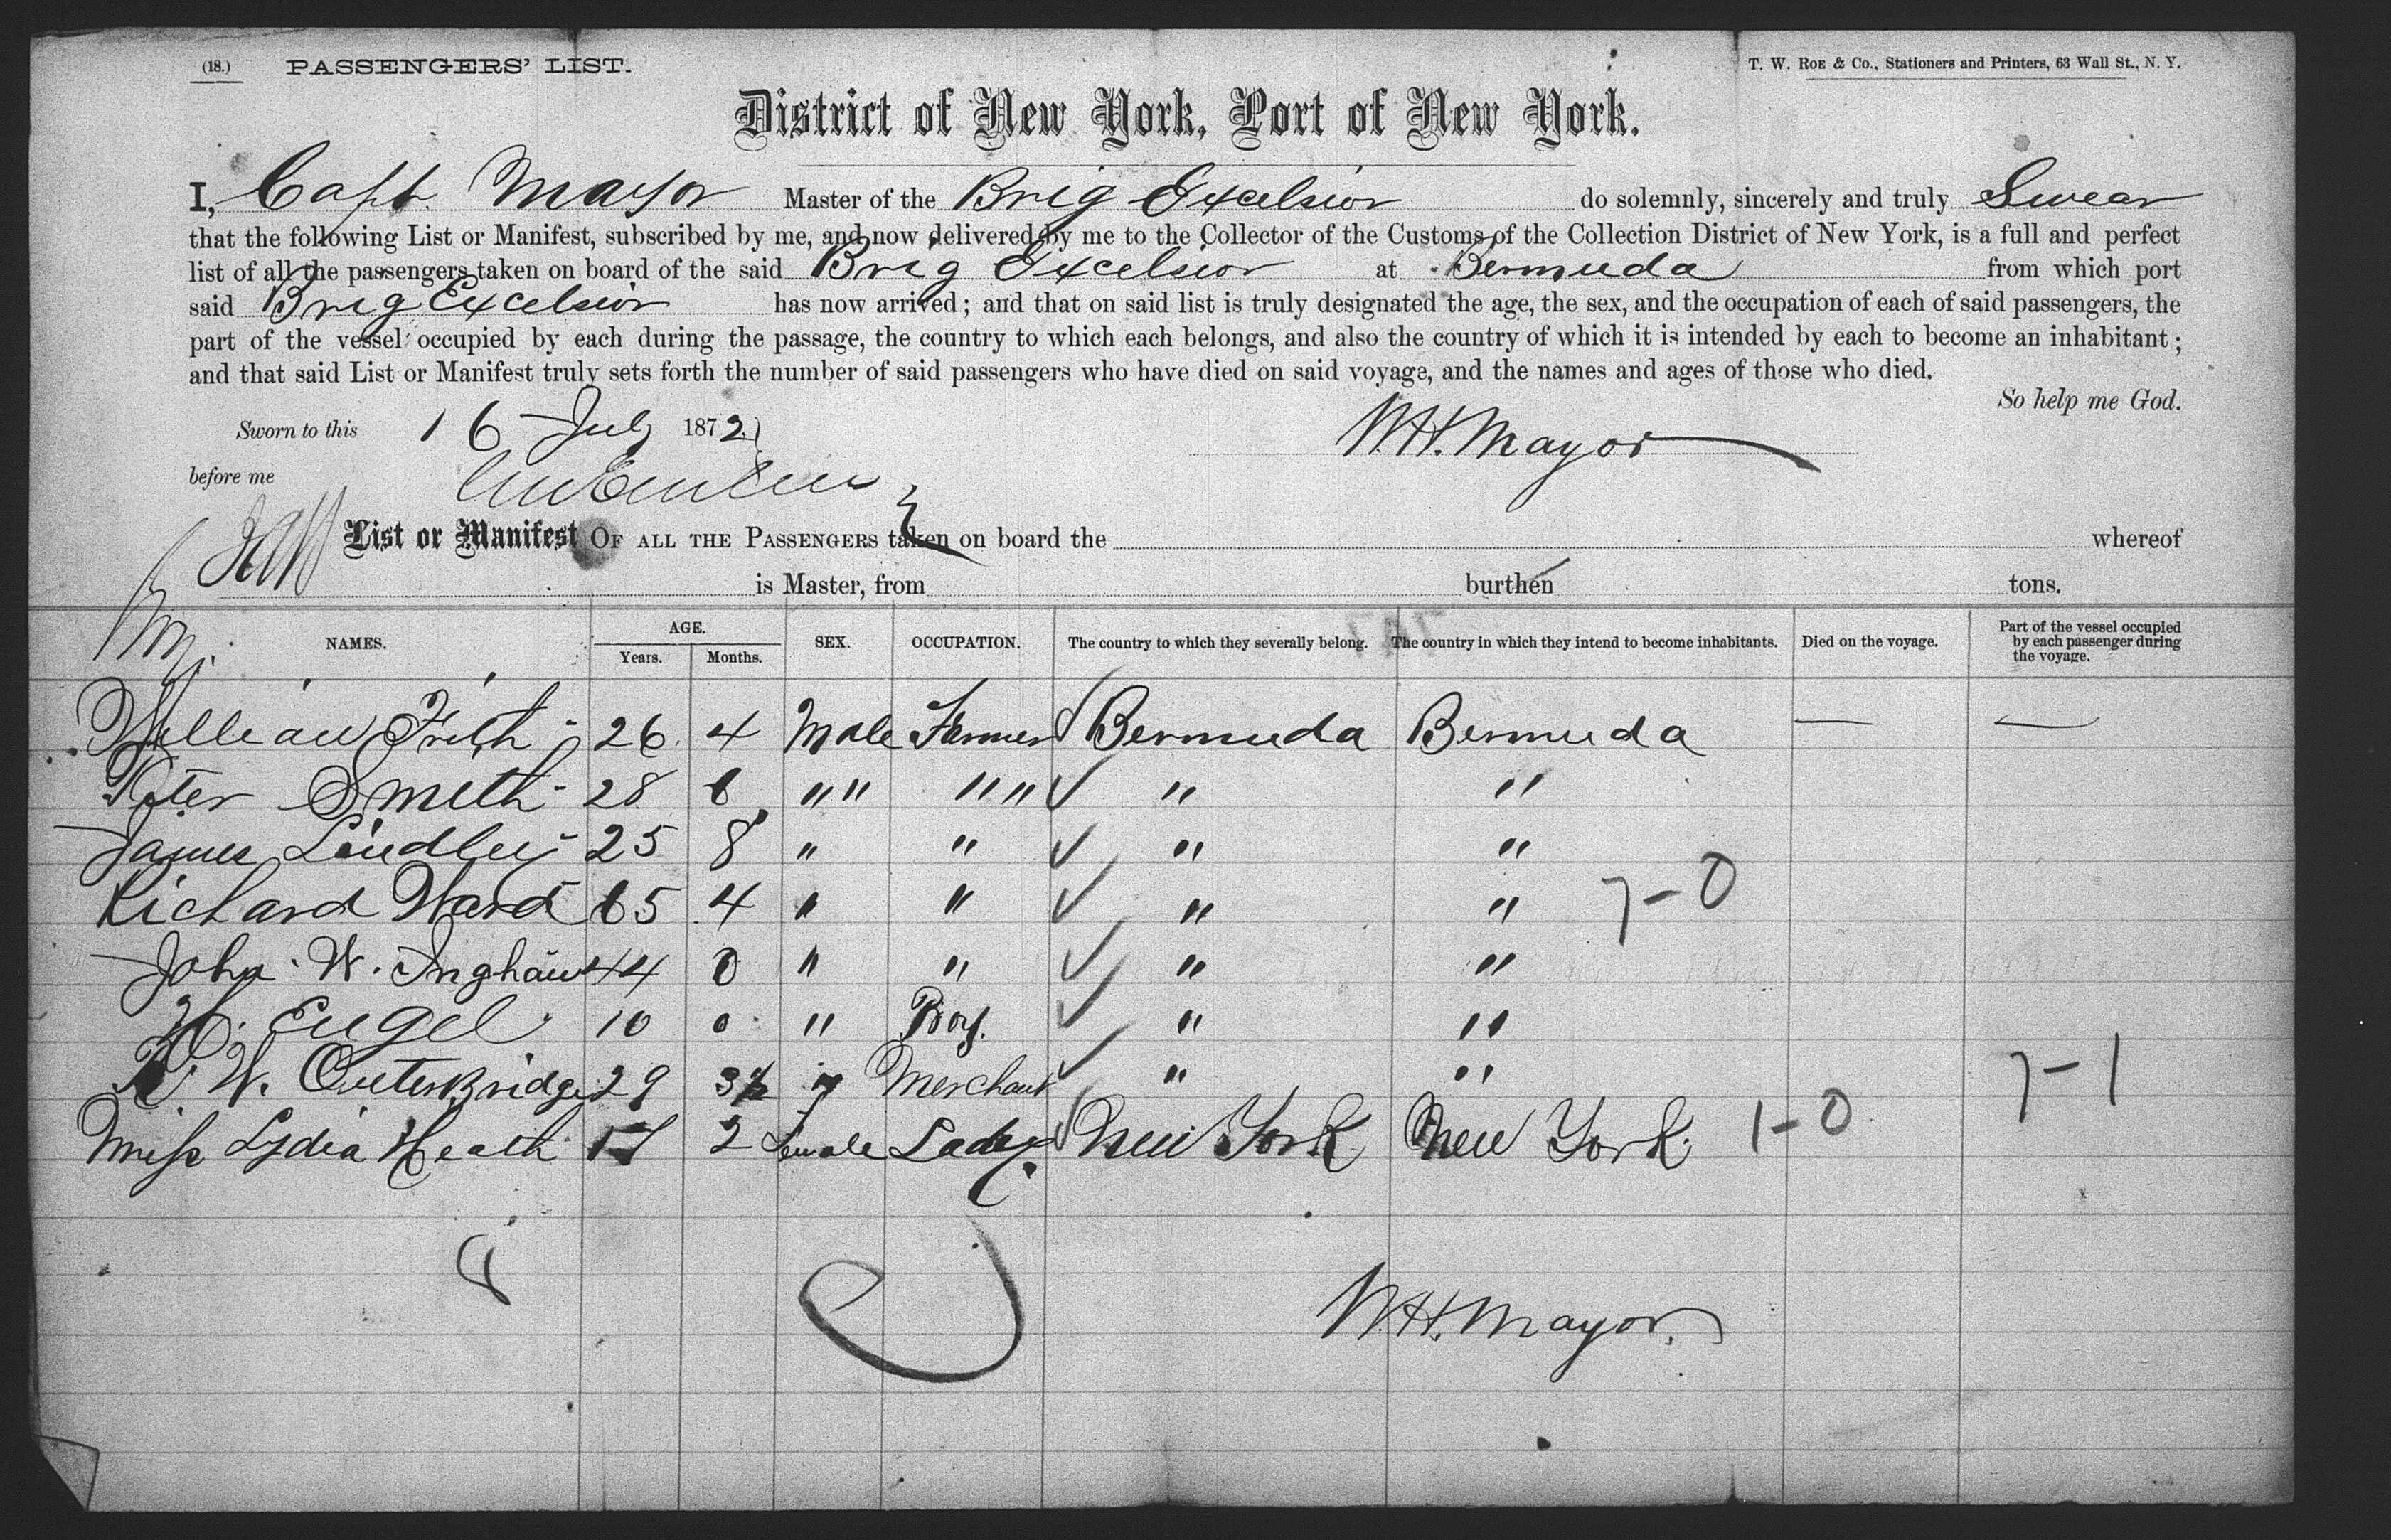 (18.) PASSENGERS' LIST. T. W. ROE & Co., Stationers and Printers, 63 Wall St., N. Y.
District of New York, Port of New York.
I, Capt. Mayor Master of the Brig Excelsior do solemnly, sincerely and truly Swear
that the following List or Manifest, subscribed by me, and now delivered by me to the Collector of the Customs of the Collection District of New York, is a full and perfect
list of all the passengers taken on board of the said Brig Excelsior at Bermuda from which port
said Brig Excelsior has now arrived; and that on said list is truly designated the age, the sex, and the occupation of each of said passengers, the
part of the vessel occupied by each during the passage, the country to which each belongs, and also the country of which it is intended by each to become an inhabitant;
and that said List or Manifest truly sets forth the number of said passengers who have died on said voyage, and the names and ages of those who died.
So help me God.
Sworn to this 16 July 1872 W.H. Mayor
before me
List or Manifest OF ALL THE PASSENGERS taken on board the whereof
is Master, from burthen tons.
NAMES. AGE. Years. Months. SEX. OCCUPATION. The country to which they severally belong. The country in which they intend to become inhabitants. Died on the voyage. Part of the vessel occupied by each passenger during the voyage.
William Frith 26 4 Male Farmer Bermuda Bermuda — —
Peter Smith 28 6 " " " " " "
James Lindley 25 8 " " " "
Richard Ward 65 4 " " " " 7-0
John W. Ingham 44 0 " " " "
H. Engel 10 0 " Boy. " "
W. Outerbridge 29 3½ " Merchant " " 7-1
Miss Lydia Heath 17 2 Female Lady New York New York. 1-0
8
W.H. Mayor.